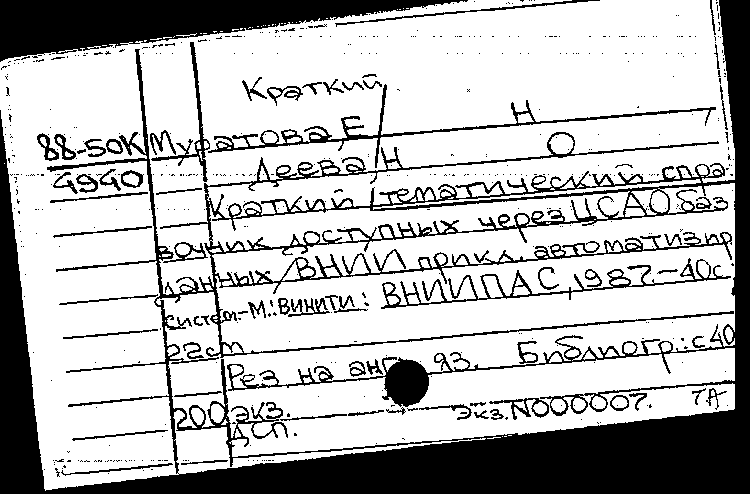 Краткий
88-50К Муратова, Е Н
4940 Деева, Н О
Краткий тематический спра-
вочник доступных через ЦСАО баз
данных / ВНИИ прикл. автоматизир
систем.-М.: ВИНИТИ: ВНИИПАС, 1987.-40с
22см.
Рез на анг. яз. Библиогр.: с40
200 экз.
ДСП. Экз. N000007. ТА